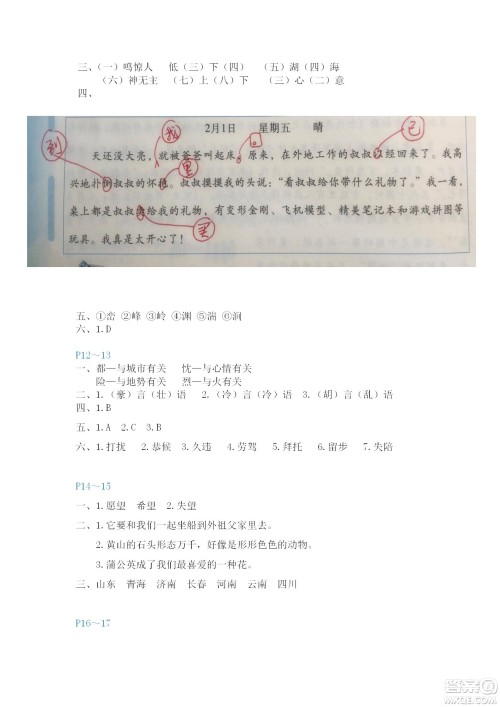 三、（一）鸣惊人　低（三）下（四）　（五）湖（四）海
（六）神无主　（七）上（八）下　（三）心（二）意
四、
2月1日　星期五　晴
我
回
已
到
里
天还没大亮，就被爸爸叫起床。原来，在外地工作的叔叔经回来了。我高
兴地扑倒叔叔的怀。叔叔摸摸我的头说：“看叔叔给你带什么礼物了。”我一看，
桌上都是叔叔给我的礼物，有变形金刚、飞机模型、精美笔记本和游戏拼图等
玩具。我真是太开心了！
买
五、①峦 ②峰 ③岭 ④渊 ⑤湍 ⑥涧
六、1.D
P12～13
一、都—与城市有关　忧—与心情有关
险—与地势有关　烈—与火有关
二、1.（豪）言（壮）语　2.（冷）言（冷）语　3.（胡）言（乱）语
四、1.B
五、1.A　2.C　3.B
六、1.打扰　2.恭候　3.久违　4.劳驾　5.拜托　6.留步　7.失陪
P14～15
一、1.愿望　希望　2.失望
二、1.它要和我们一起坐船到外祖父家里去。
2.黄山的石头形态万千，好像是形形色色的动物。
3.蒲公英成了我们最喜爱的一种花。
三、山东　青海　济南　长春　河南　云南　四川
P16～17
答案圈
MXQE.COM